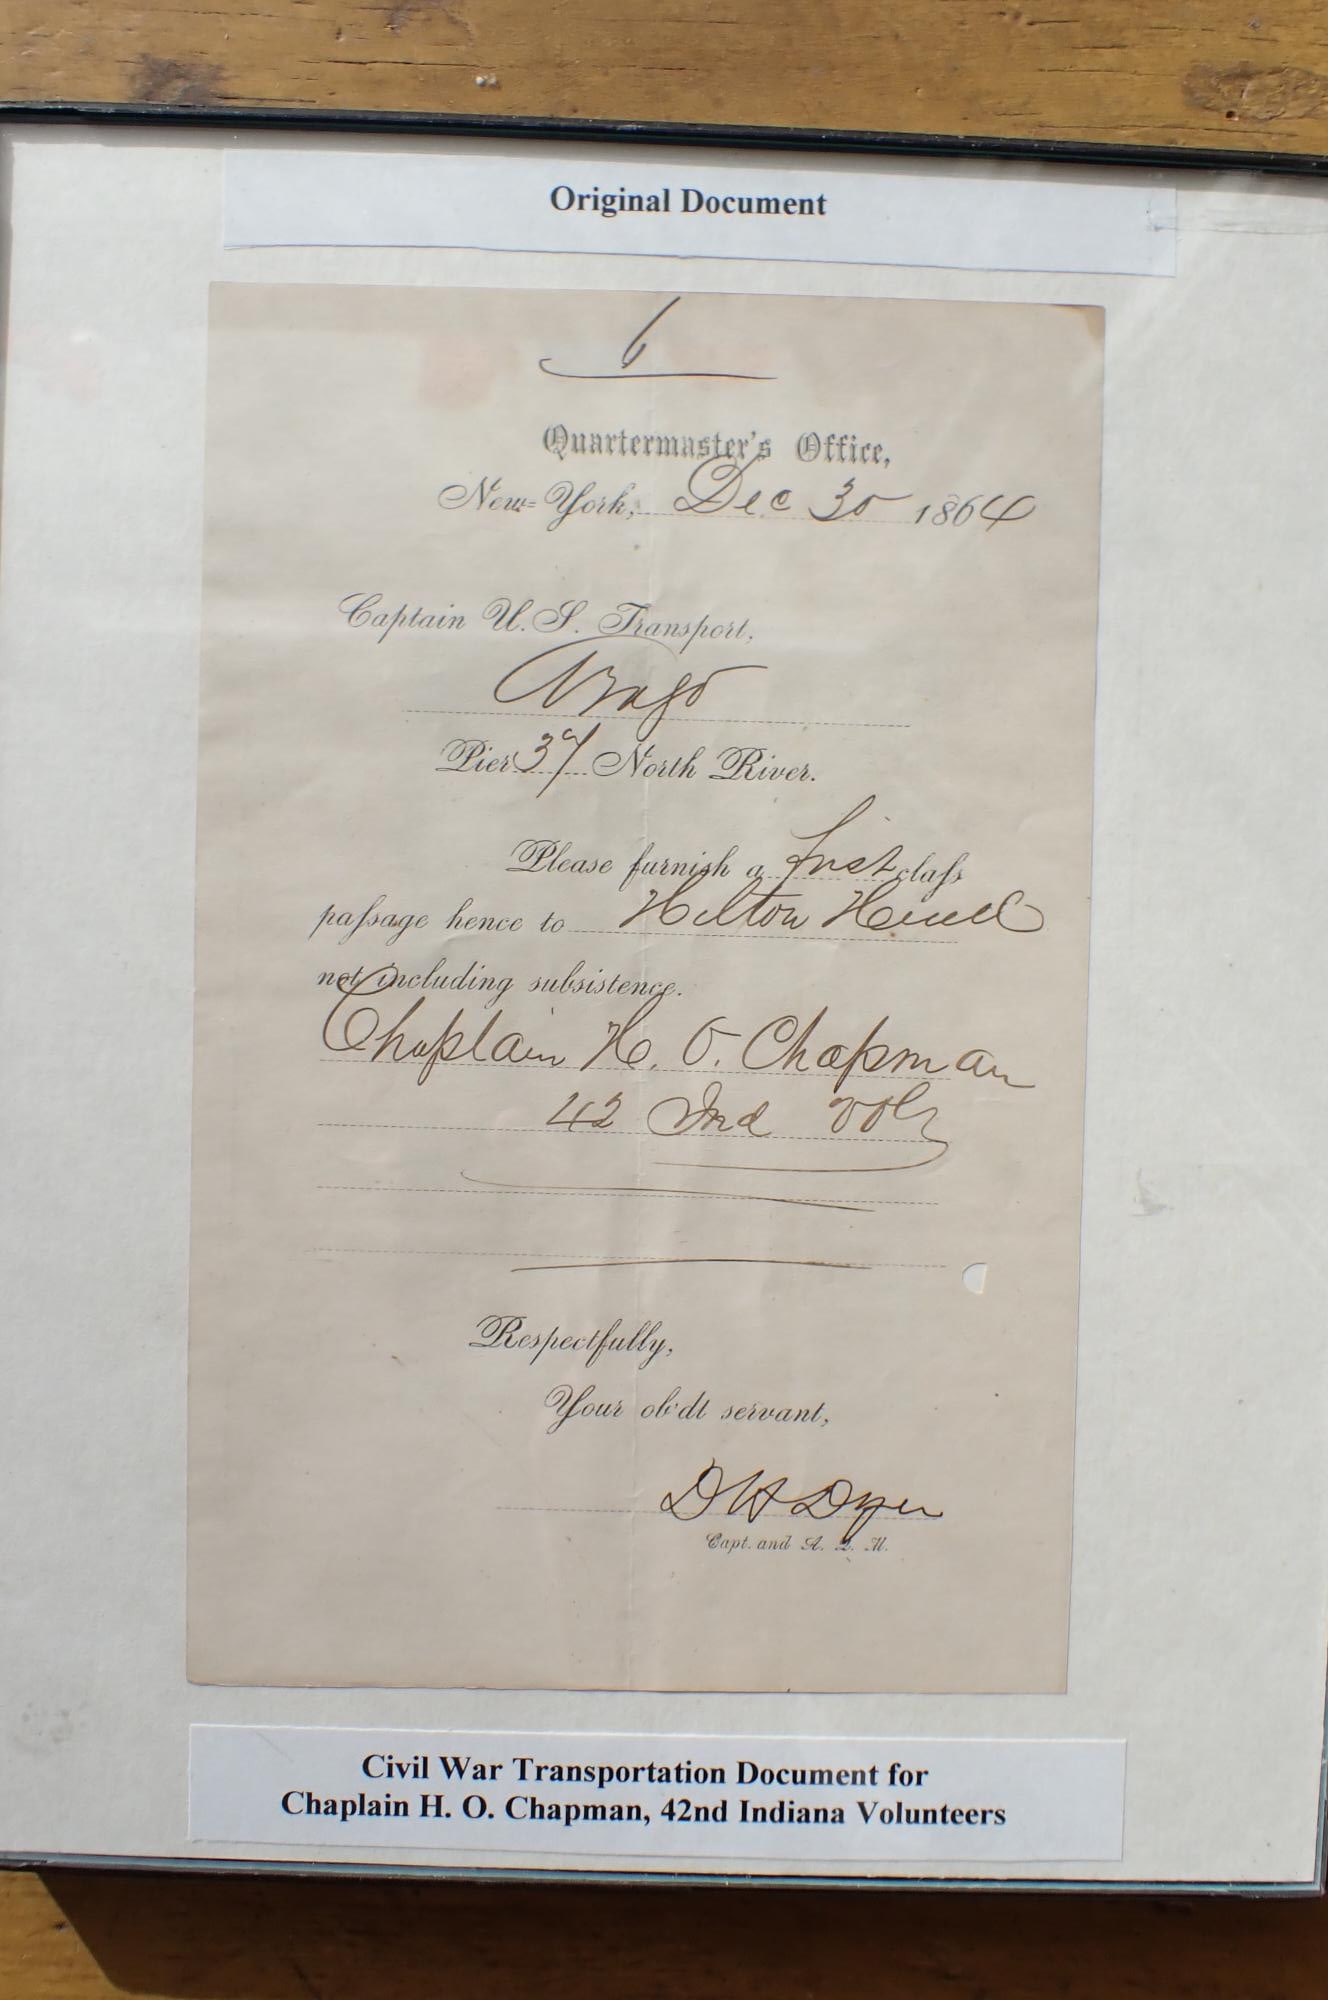 Original Document
6
Quartermaster's Office,
New-York, Dec 30 1864
Captain U. S. Transport,
Arago
Pier 37 North River.
Please furnish a first claſs
paſsage hence to Hilton Head
not including subsistence.
Chaplain H. O. Chapman
42 Ind Vols
Respectfully,
Your ob'dt servant,
D W Dyer
Capt. and A. Q. M.
Civil War Transportation Document for
Chaplain H. O. Chapman, 42nd Indiana Volunteers